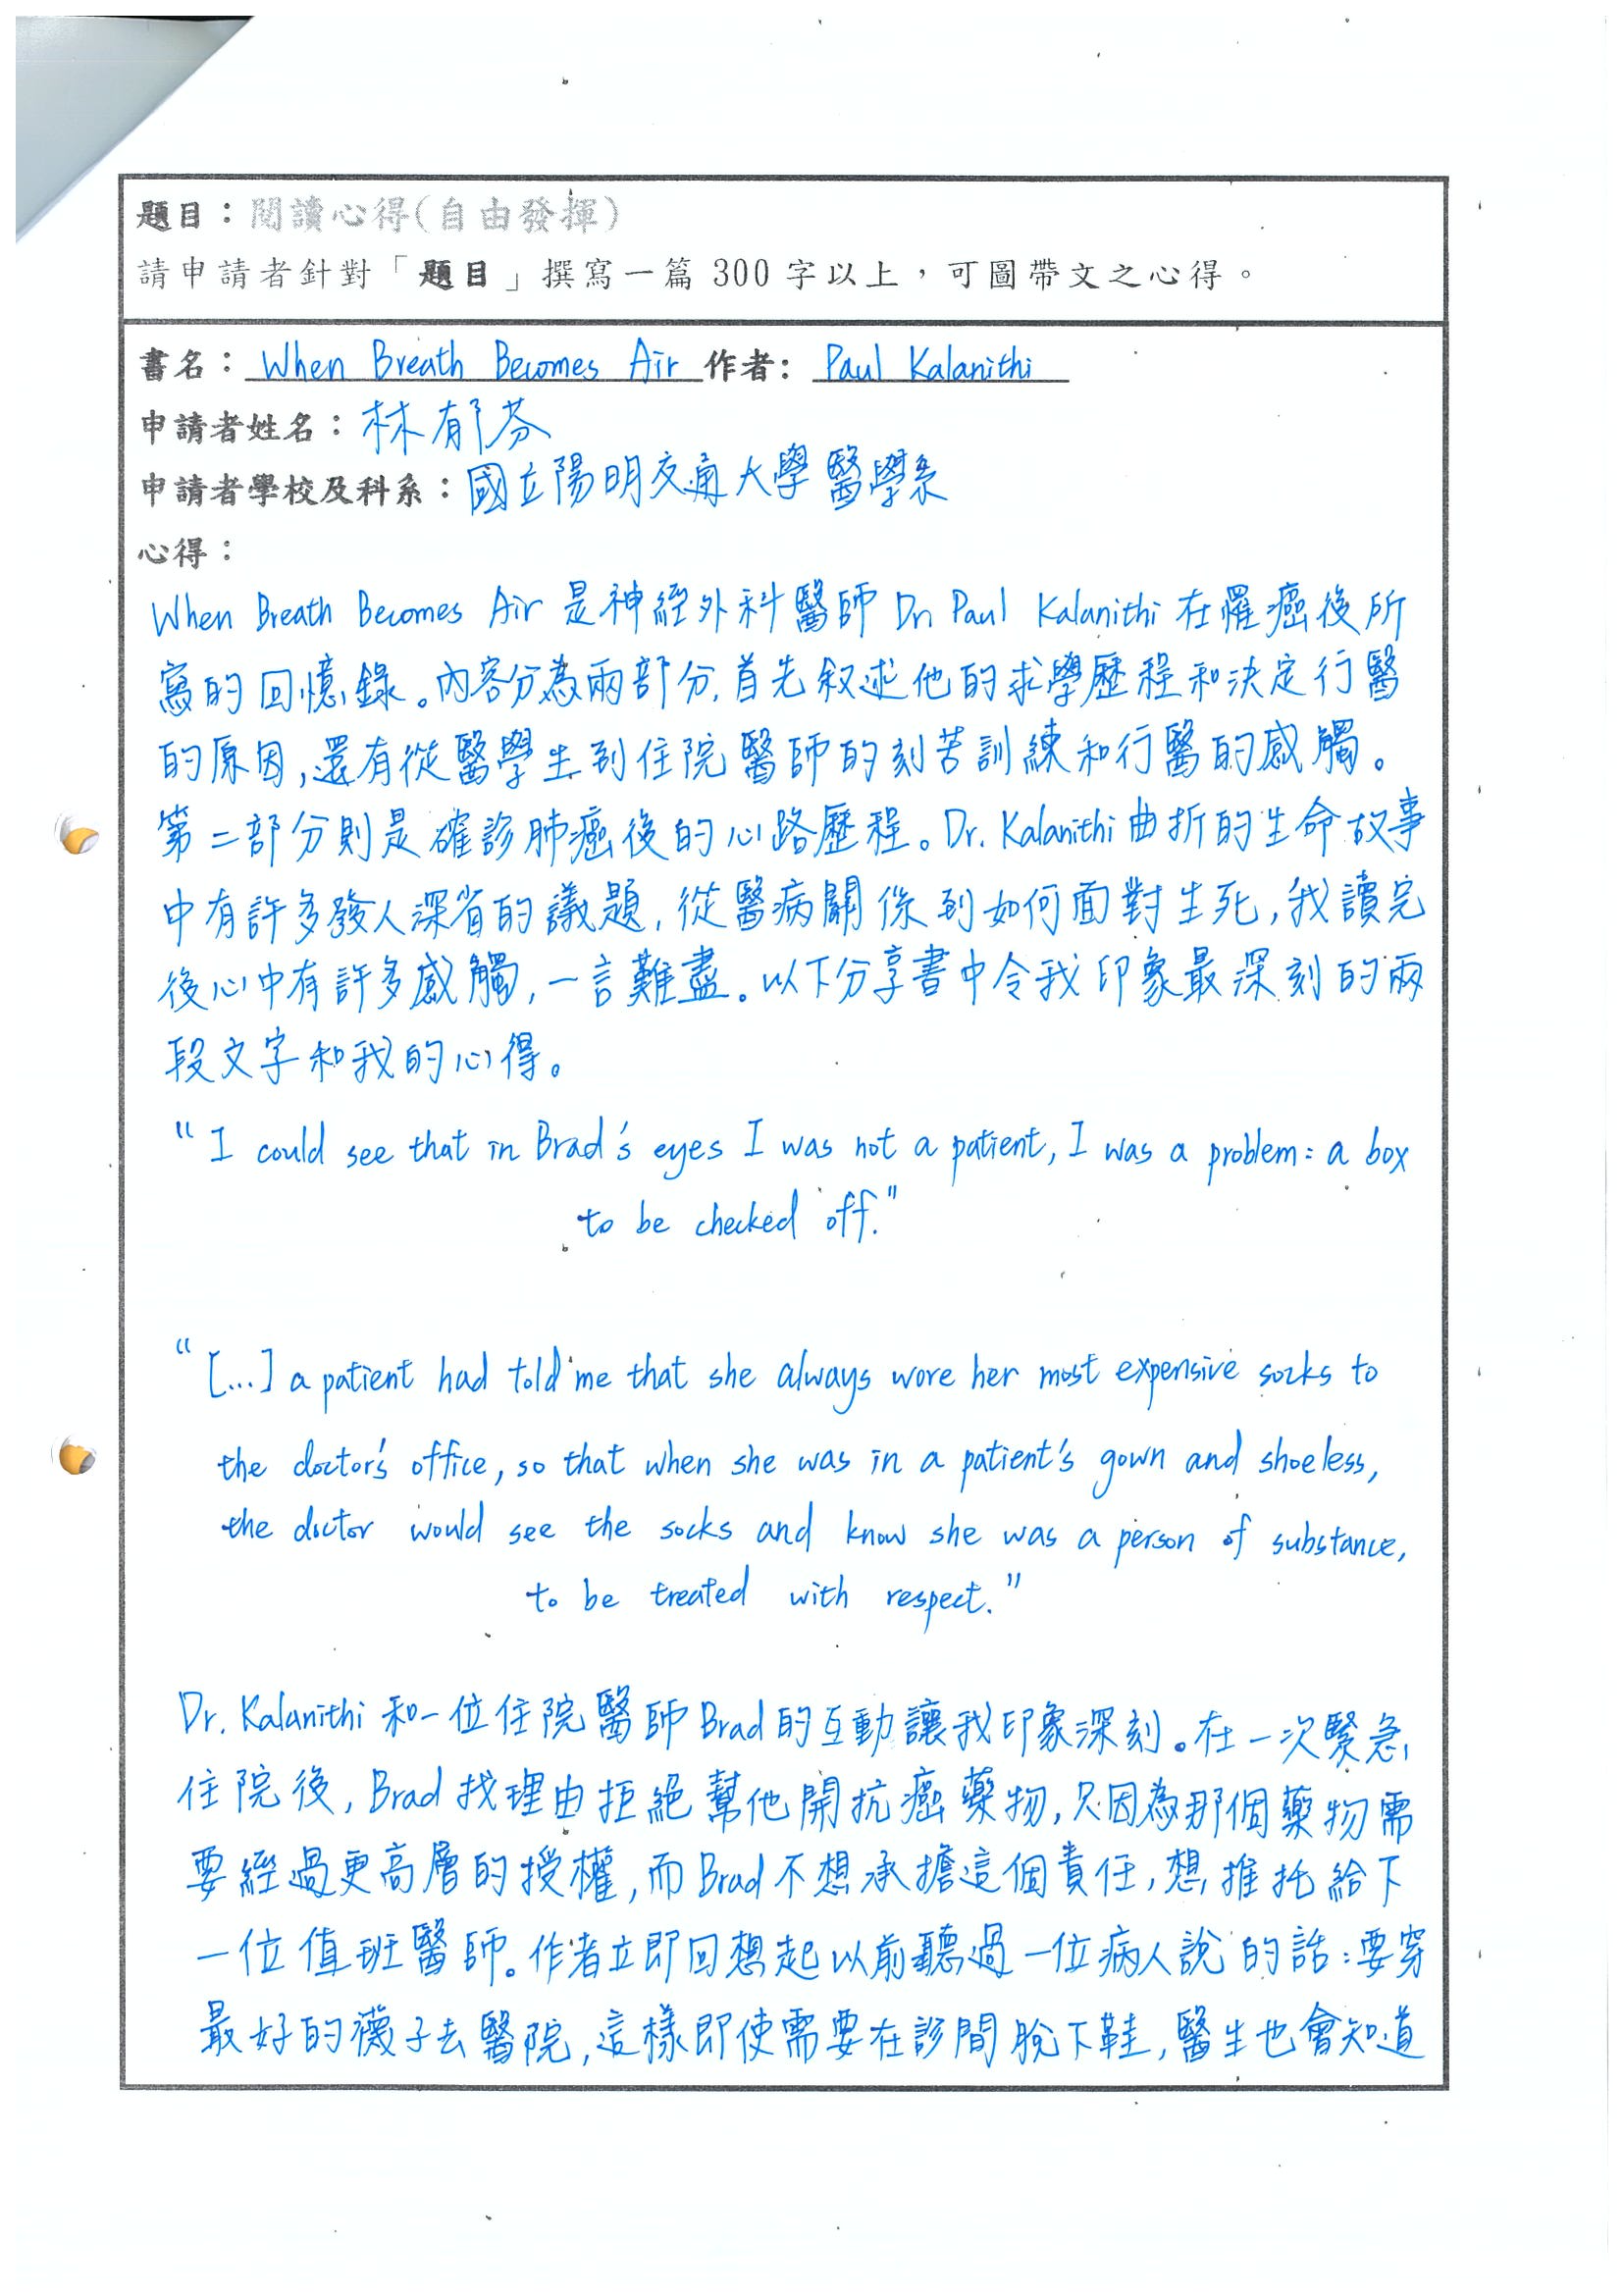 題目：閱讀心得(自由發揮)
請申請者針對「題目」撰寫一篇 300 字以上，可圖帶文之心得。
書名：When Breath Becomes Air 作者：Paul Kalanithi
申請者姓名：林郁芬
申請者學校及科系：國立陽明交通大學醫學系
心得：
When Breath Becomes Air 是神經外科醫師 Dr. Paul Kalanithi 在罹癌後所
寫的回憶錄。內容分為兩部分，首先敘述他的求學歷程和決定行醫
的原因，還有從醫學生到住院醫師的刻苦訓練和行醫的感觸。
第二部分則是確診肺癌後的心路歷程。Dr. Kalanithi 曲折的生命故事
中有許多發人深省的議題，從醫病關係到如何面對生死，我讀完
後心中有許多感觸，一言難盡。以下分享書中令我印象最深刻的兩
段文字和我的心得。
"I could see that in Brad's eyes I was not a patient, I was a problem: a box
to be checked off."
"[...] a patient had told me that she always wore her most expensive socks to
the doctor's office, so that when she was in a patient's gown and shoeless,
the doctor would see the socks and know she was a person of substance,
to be treated with respect."
Dr. Kalanithi 和一位住院醫師 Brad 的互動讓我印象深刻。在一次緊急
住院後，Brad 找理由拒絕幫他開抗癌藥物，只因為那個藥物需
要經過更高層的授權，而 Brad 不想承擔這個責任，想推托給下
一位值班醫師。作者立即回想起以前聽過一位病人說的話：要穿
最好的襪子去醫院，這樣即使需要在診間脫下鞋，醫生也會知道